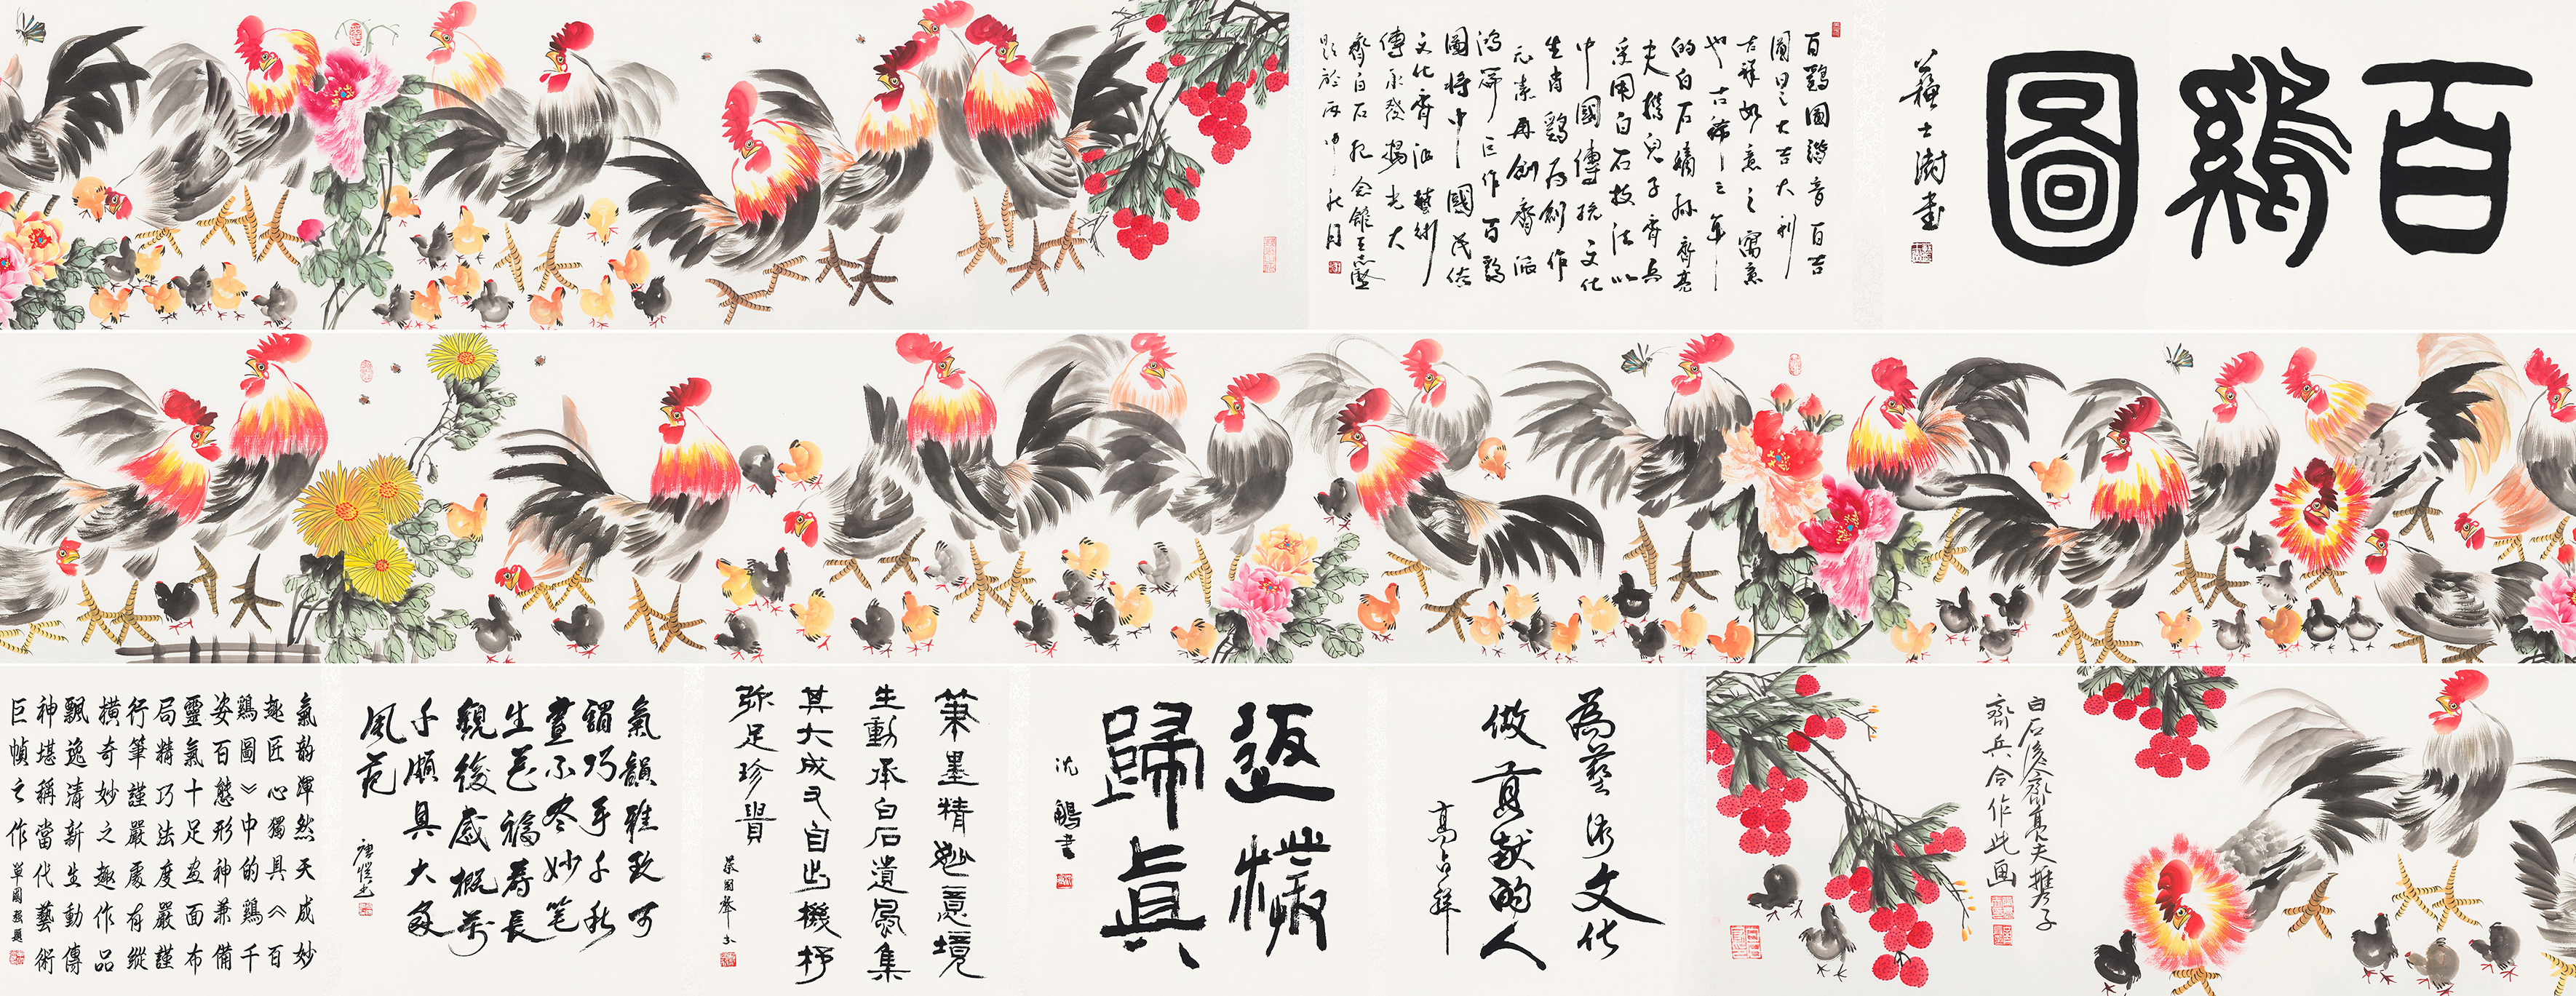 百鷄圖
蘇士澍書
百鷄圖諧音百吉
圖日日大吉大利
吉祥如意之寓意
也古稀之年
的白石嫡孫齊亮
夫携兒子齊兵
采用白石技法以
中國傳統文化
生肖鷄爲創作
元素再創齊派
鴻篇巨作百鷄
圖將中國民俗
文化齊派藝術
傳承發揚光大
齊白石紀念館王志堅
題於丙申秋月
白石後裔齊亮夫携子
齊兵合作此画
為藝術文化
做貢獻的人
高占祥
返樸
歸真
沈鵬書
筆墨精妙意境
生動承白石遺風集
其大成又自出機杼
弥足珍貴
蔡国聲書
氣韻雅致可
謂巧手千秋
畫不冬妙笔
生花福壽長
觀後感概万
千頗具大家
風范
唐愷書
氣韵渾然天成妙
趣匠心獨具《百
鷄圖》中的鷄千
姿百態形神兼備
靈氣十足画面布
局精巧法度嚴謹
行筆謹嚴處有縱
橫奇妙之趣作品
飄逸清新生動傳
神堪稱當代藝術
巨幀之作單國强題